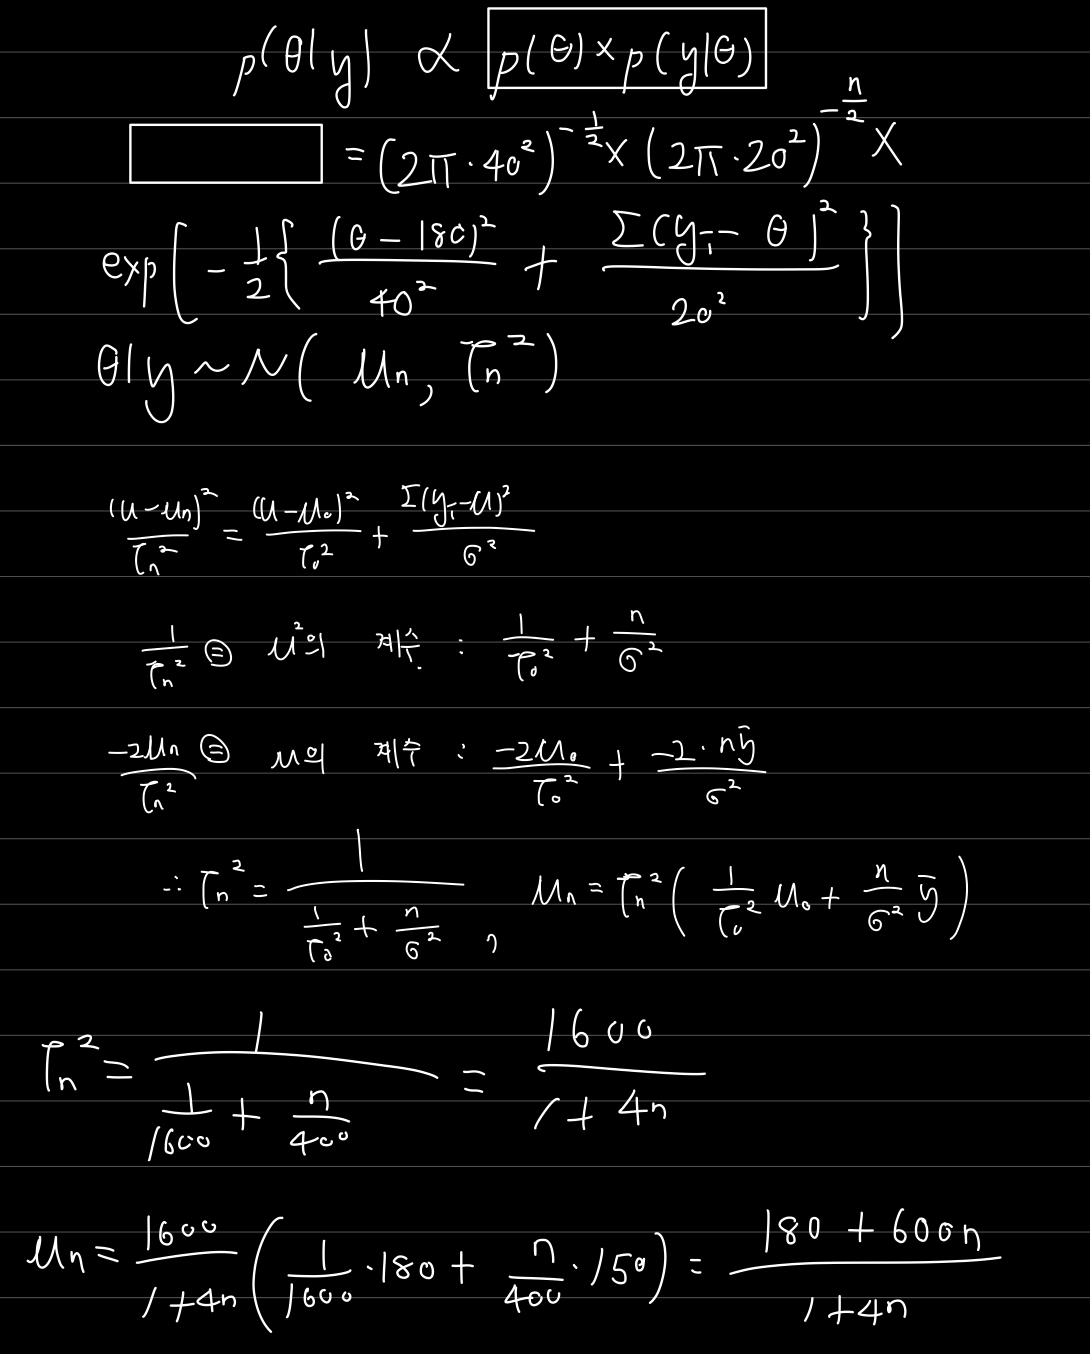 p(θ|y) ∝ p(θ)×p(y|θ)
= (2π·40²)^{-1/2} × (2π·20²)^{-n/2} ×
exp[-1/2{(θ-180)²/40² + Σ(yᵢ-θ)²/20²}]
θ|y ~ N(μₙ, τₙ²)
(μ-μₙ)²/τₙ² = (μ-μ₀)²/τ₀² + Σ(yᵢ-μ)²/σ²
1/τₙ² ⊜ μ²의 계수 : 1/τ₀² + n/σ²
-2μₙ/τₙ² ⊜ μ의 계수 : -2μ₀/τ₀² + -2·nȳ/σ²
∴ τₙ² = 1/(1/τ₀² + n/σ²), μₙ = τₙ²(1/τ₀² μ₀ + n/σ² ȳ)
τₙ² = 1/(1/1600 + n/400) = 1600/(1+4n)
μₙ = 1600/(1+4n) (1/1600·180 + n/400·150) = (180+600n)/(1+4n)